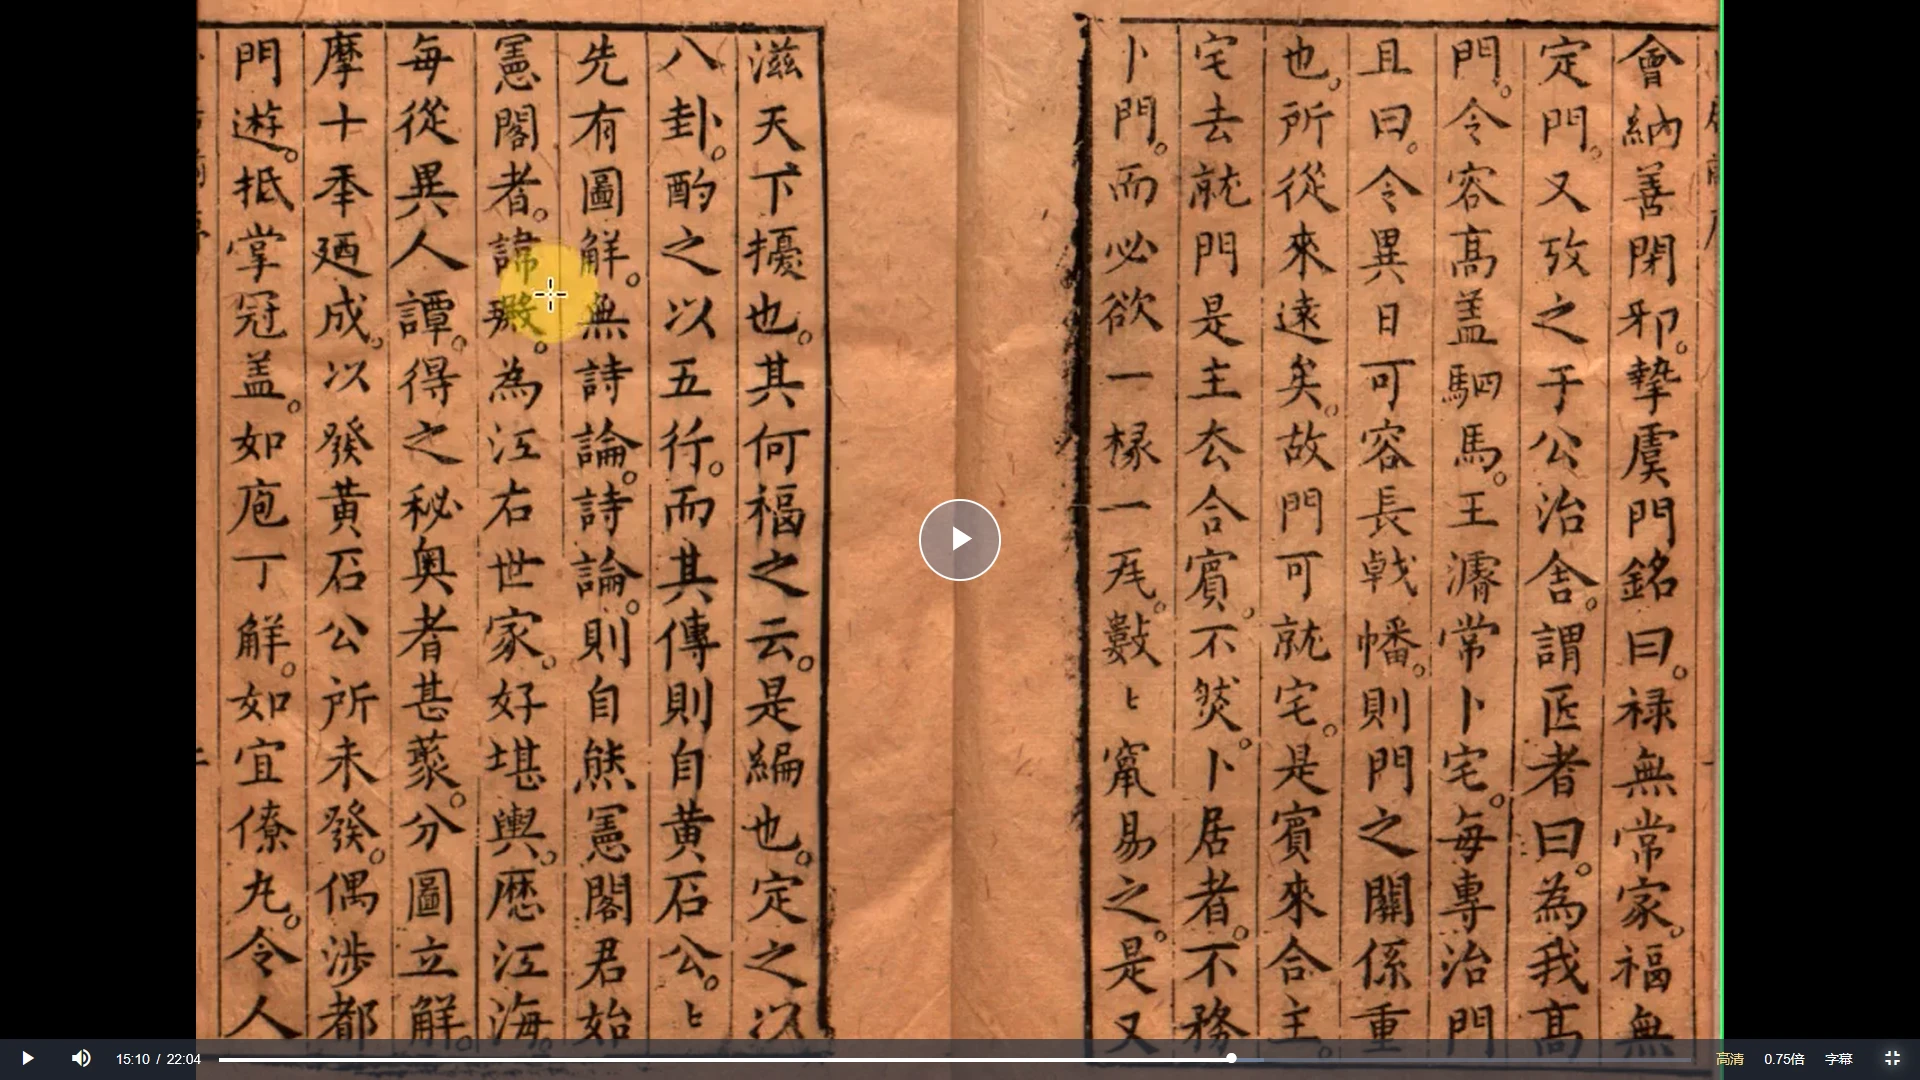 會納善閉邪。摯虞門銘曰。禄無常家。福無
定門。又攷之于公治舍。謂匠者曰。為我高
門。令容高盖駟馬。王濬常卜宅。每專治門
且曰。令異日可容長戟幡。則門之關係重
也。所從來遠矣。故門可就宅。是賓來合主。
宅去就門是主去合賓。不然。卜居者。不務
卜門。而必欲一椽一瓦。數〻竄易之。是又
滋天下擾也。其何福之云。是編也。定之以
八卦。酌之以五行。而其傳則自黃石公。〻
先有圖解。無詩論。詩論。則自熊憲閣君始
憲閣者。諱璬。為江右世家。好堪輿。歷江海。
每從異人譚。得之秘奥者甚夥。分圖立解。
摩十年廼成。以發黃石公所未發。偶涉都
門遊。抵掌冠盖。如庖丁解。如宜僚丸。令人
15:10 / 22:04
高清 0.75倍 字幕